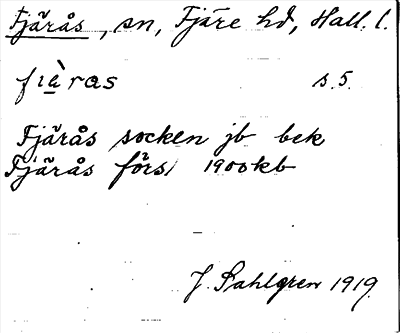 Fjärås, sn, Fjäre hd, Hall. l.
fiàras s. 5.
Fjärås socken jb bek
Fjärås förs 1900 kb
J. Sahlgren 1919